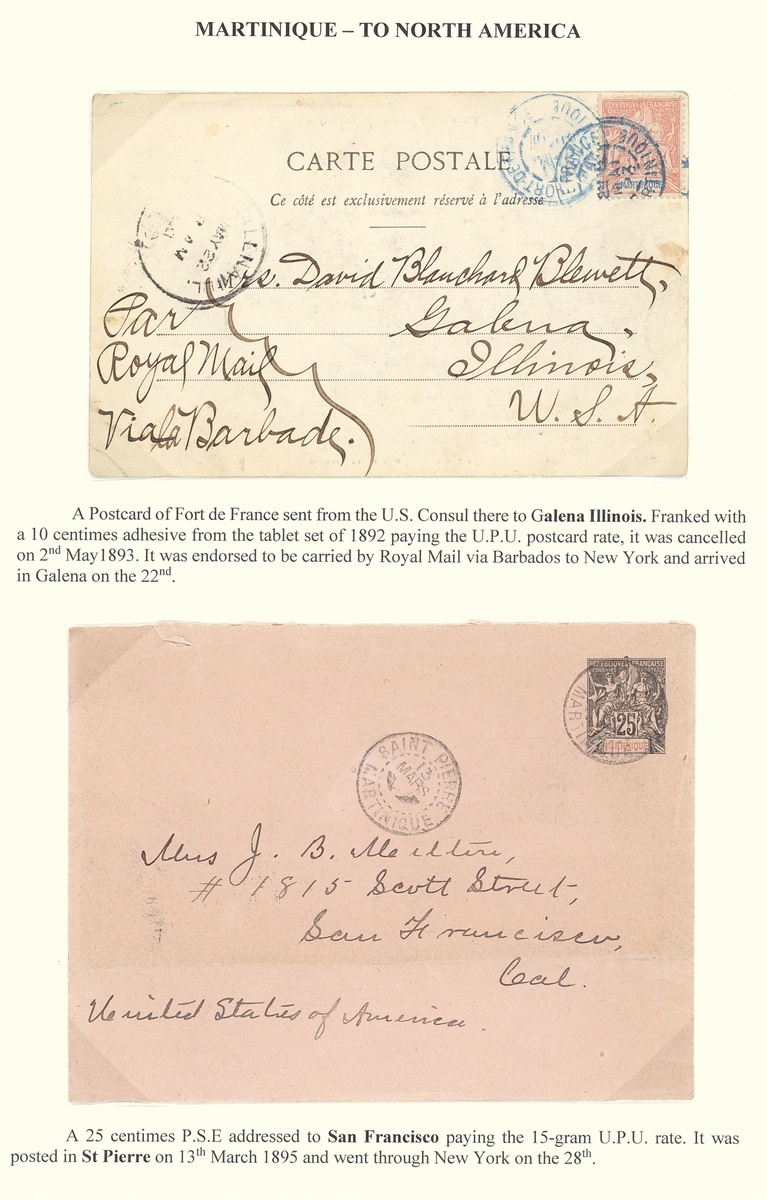 MARTINIQUE – TO NORTH AMERICA
REPUBLIQUE FRANÇAISE
CARTE POSTALE
Ce côté est exclusivement réservé à l'adresse
MAY 22
AM
ILL.
Mrs. David Blanchard Blewett,
Par
Galena,
Royal Mail
Illinois,
Via la Barbade.
U. S. A.
A Postcard of Fort de France sent from the U.S. Consul there to Galena Illinois. Franked with
a 10 centimes adhesive from the tablet set of 1892 paying the U.P.U. postcard rate, it was cancelled
on 2nd May1893. It was endorsed to be carried by Royal Mail via Barbados to New York and arrived
in Galena on the 22nd.
REPUBLIQUE FRANÇAISE
COLONIES POSTES
25
MARTINIQUE
SAINT PIERRE
13
MARS
MARTINIQUE
Mrs J. B.
# 1815 Scott Street,
San Francisco,
Cal.
United States of America.
A 25 centimes P.S.E addressed to San Francisco paying the 15-gram U.P.U. rate. It was
posted in St Pierre on 13th March 1895 and went through New York on the 28th.